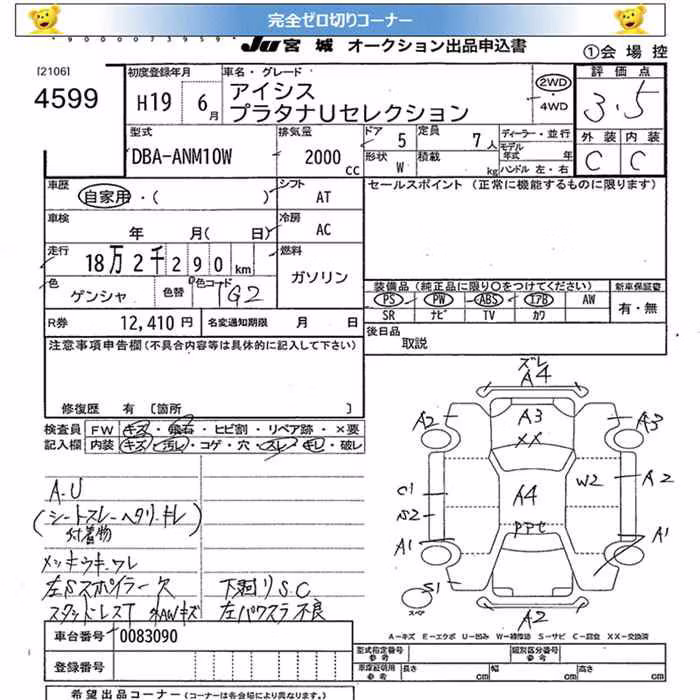 完全ゼロ切りコーナー
9000073959
JU 宮城 オークション出品申込書
①会場控
[2106]
4599
初度登録年月
H19 6月
車名・グレード
アイシス
プラタナUセレクション
2WD
・4WD
評価点
3.5
外装 内装
C C
型式
DBA-ANM10W
排気量
2000 cc
ドア 5
定員 7人
形状 W
積載 kg
ディーラー・並行
モデル年式 年
ハンドル 左・右
車歴
自家用・( )
シフト
AT
セールスポイント (正常に機能するものに限ります)
車検
年 月( 日)
冷房
AC
走行
18万2千290km
燃料
ガソリン
色
ゲンシャ
色替
色コード
1G2
装備品 (純正品に限り○をつけてください)
PS PW ABS エアB AW
SR ナビ TV カワ
新車保証書
有・無
R券 12,410円
名変通知期限 月 日
後日品
取説
注意事項申告欄(不具合内容等は具体的に記入して下さい)
修復歴 有 [箇所 ]
検査員
記入欄
FW キズ・飛石・ヒビ割・リペア跡・×要
内装 キズ・汚レ・コゲ・穴・スレ・キレ・破レ
A.U
(シートスレ ヘタリ・キレ)
付着物
メッキウキ ワレ
左Sスポイラー欠
スタッドレスT 木AWキズ
下廻りS.C
左パワスラ不良
ズレ
A4
A2
A3
XX
A3
W2
A2
A4
C1
S2
A1
A1
S1
スペア
A2
A-キズ E-エクボ U-凹み W-補修跡 S-サビ C-腐食 XX-交換済
車台番号 0083090
登録番号
型式指定番号
参考
類別区分番号
参考
車庫証明用
参考
長さ cm
幅 cm
高さ cm
希望出品コーナー (コーナーは各会場により異なります。)